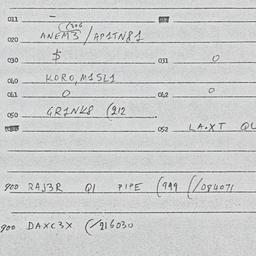 011 –
(206
020 ANEM3/AP1TN81
030 $ 031 0
040 KORO,M1SL1
041 0 042 0
050 GR1NK8 (212
052 LA.XT QU
900 RAJ3R Q1 P1PE (999 (/084071
900 DAXC3X (/216030